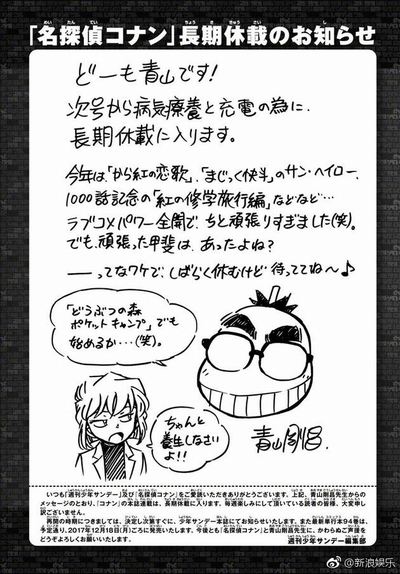 「名探偵コナン」長期休載のお知らせ
どーも青山です!
次号から病気療養と充電の為に、
長期休載に入ります。
今年は「から紅の恋歌」、「まじっく快斗」のサン・ヘイロー、
1000話記念の「紅の修学旅行編」などなど…
ラブコメパワー全開で、ちと頑張りすぎました(笑)。
でも、頑張った甲斐は、あったよね?
――ってなワケで、しばらく休むけど待っててね〜♪
「どうぶつの森
ポケットキャンプ」でも
始めるか…(笑)。
ちゃんと
養生しなさい
よ!!
青山剛昌
いつも「週刊少年サンデー」及び「名探偵コナン」をご愛読いただきありがとうございます。上記、青山剛昌先生からの
メッセージのとおり、「コナン」の本誌連載は、長期休載に入ります。毎週楽しみにして頂いている読者の皆様、大変申し
訳ございません。
再開の時期につきましては、決定し次第すぐに、少年サンデー本誌にてお知らせいたします。また最新単行本94巻は、
予定通り、2017年12月18日(月)ごろに発売いたします。今後とも「名探偵コナン」と青山剛昌先生に、かわらぬご声援を
どうぞよろしくお願いいたします。
週刊少年サンデー編集部
@新浪娱乐